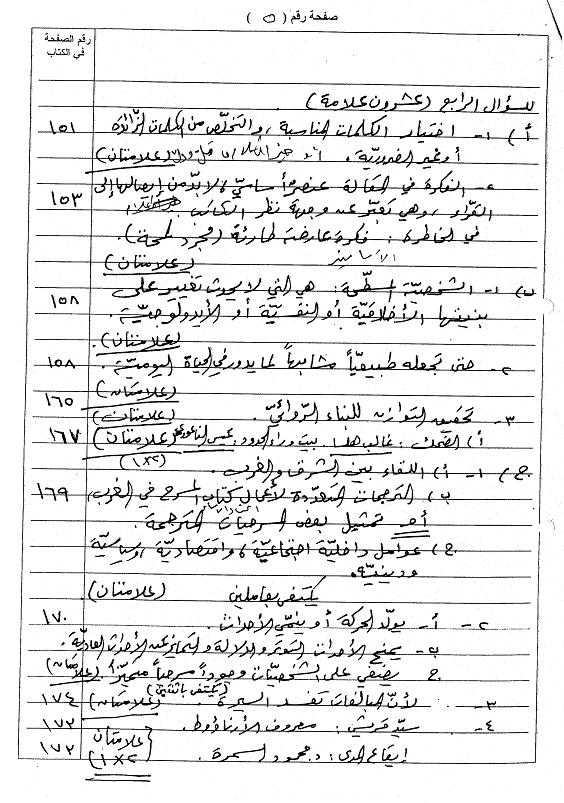 صفحة رقم ( ٥ )
رقم الصفحة في الكتاب
السؤال الرابع (عشرون علامة)
أ) ١- اختيار الكلمات المناسبة، والتخلص من الكلمات الزائدة ١٥١
أو غير الضرورية. (علامتان)
٢- الفكرة في المقالة عنصر أساسي لابد من إيصالها إلى ١٥٣
القراء، وهي تعبر عن وجهة نظر الكاتب
في الخاطرة: فكرة عارضة طارئة (مجرد لمحة).
(علامتان)
ب) ١- الشخصية المسطحة: هي التي لا يحدث تغيير على ١٥٨
بنيتها الأخلاقية أو النفسية أو الأيدولوجية.
(علامتان).
٢- حتى تجعله طبيعياً مشابهاً لما يدور في الحياة اليومية. ١٥٨
(علامتان)
٣- تحقيق التوازن للبناء الروائي. (علامتان) ١٦٥
أ) الصمت: غالب هلسا. بيت وراء الحدود: عيسى الناعوري (علامتان) ١٦٧
(١×٢)
ج) ١- أ) اللقاء بين الشرق والغرب.
ب) الترجمات المتعددة لأعمال كتاب المسرح في الغرب، ١٦٩
أو تمثيل بعض المسرحيات المترجمة.
ج) عوامل داخلية اجتماعية، واقتصادية، وسياسية
ودينية.
يكتفى بعاملين (علامتان)
٢- أ- يولد الحركة أو ينمي الأحداث. ١٧٠
ب- يمنح الأحداث التوتر والدلالة والتمايز عن الأحداث العادية.
ج يضفي على الشخصيات وجوداً مسرحياً متميزاً. (علامتان)
(يكتفى باثنتين)
٣- لأن المبالغات تفسد السيرة. (علامتان) ١٧٤
٤- سيد قريش: معروف الأرناؤوط. ١٧٢
إيقاع المدى: د. محمود السمرة. ١٧٢
(علامتان ١×٢)